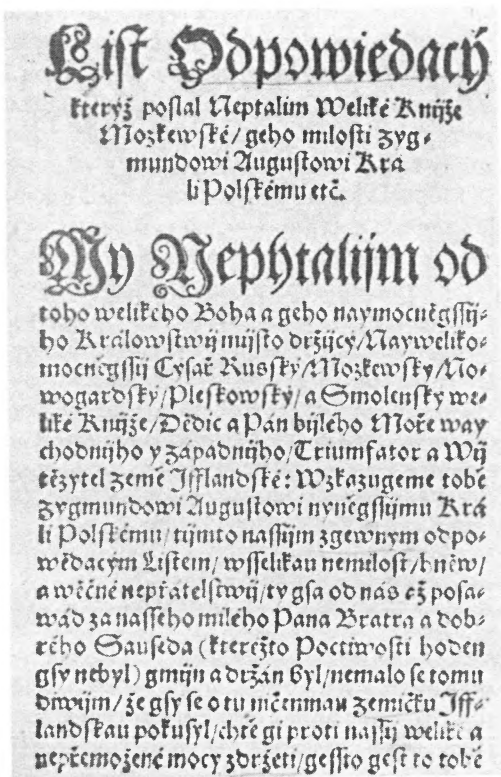 List Odpowiedacý
kterýž poslal Neptalim Weliké Knijže
Mozkewské/ geho milosti Zyg⸗
mundowi Augustowi Kra
li Polskému etč.
My Nephtalijm od
toho welikého Boha a geho naymocněgssij⸗
ho Králowstwij mijsto držijcý/ Nayweliko⸗
mocněgssij Cysař Russký/ Mozkewský/ No⸗
wogardský/ Pleskowský/ a Smolenský we⸗
liké Knijže/ Dědic a Pán bijlého Moře way
chodnijho y západnijho/ Triumfator a Wij
tězytel země Jfflandské: Wzkazugeme tobě
Zygmundowi Augustowi nyněgssijmu Krá
li Polskému/ tijmto nassijm zgewnym odpo⸗
wědacým Listem/ wsselikau nemilost/ hněw/
a wěčné nepřátelstwij/ ty gsa od nás až posa⸗
wád za nasseho milého Pana Bratra a dob⸗
rého Sauseda (kteréžto Poctiwosti hoden
gsy nebyl) gmijn a držán byl/ nemálo se tomu
diwijm/ že gsy se o tu mčenmau zemičku Jff⸗
landskau pokusyl/ chtě gi proti nassij weliké a
nepřemožené mocy zdržeti/ gessto gest to tobě